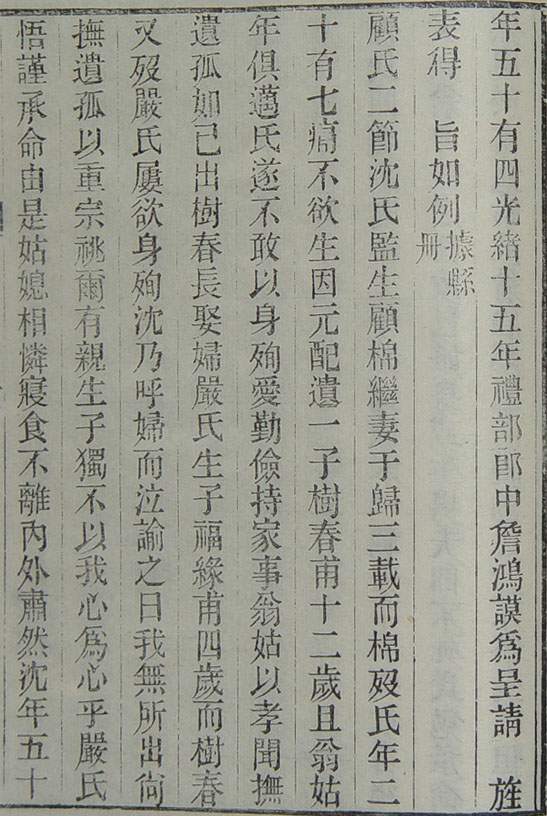 年五十有四光緒十五年禮部郎中詹鴻謨爲呈請　旌
表得　旨如例據縣冊
顧氏二節沈氏監生顧棉繼妻于歸三載而棉歿氏年二
十有七痛不欲生因元配遺一子樹春甫十二歲且翁姑
年俱邁氏遂不敢以身殉爰勤儉持家事翁姑以孝聞撫
遺孤如已出樹春長娶婦嚴氏生子福緣甫四歲而樹春
又歿嚴氏屢欲身殉沈乃呼婦而泣諭之曰我無所出尙
撫遺孤以重宗祧爾有親生子獨不以我心爲心乎嚴氏
悟謹承命由是姑媳相憐寢食不離內外肅然沈年五十